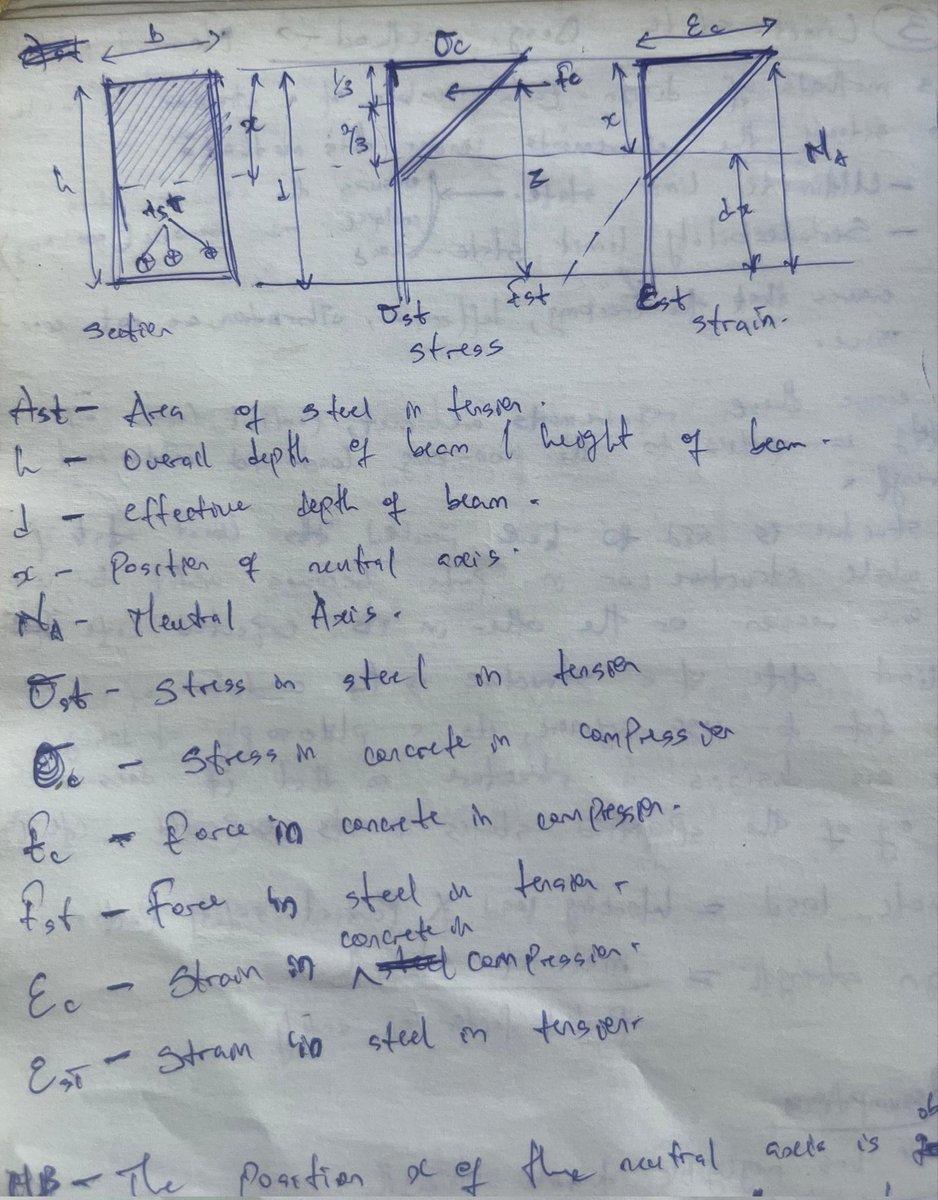 b
σc
εc
1/3
x
Fc
2/3
x
h
d
z
NA
Ast
dx
σst
Fst
εst
section
stress
strain.
Ast - Area of steel in tension.
h - Overall depth of beam / height of beam.
d - effective depth of beam.
x - Position of neutral axis.
NA - Neutral Axis.
σst - Stress in steel in tension
σc - Stress in concrete in compression
Fc - Force in concrete in compression.
Fst - Force in steel in tension.
εc - Strain in concrete in compression.
εst - Strain in steel in tension.
NB - The position x of the neutral axis is